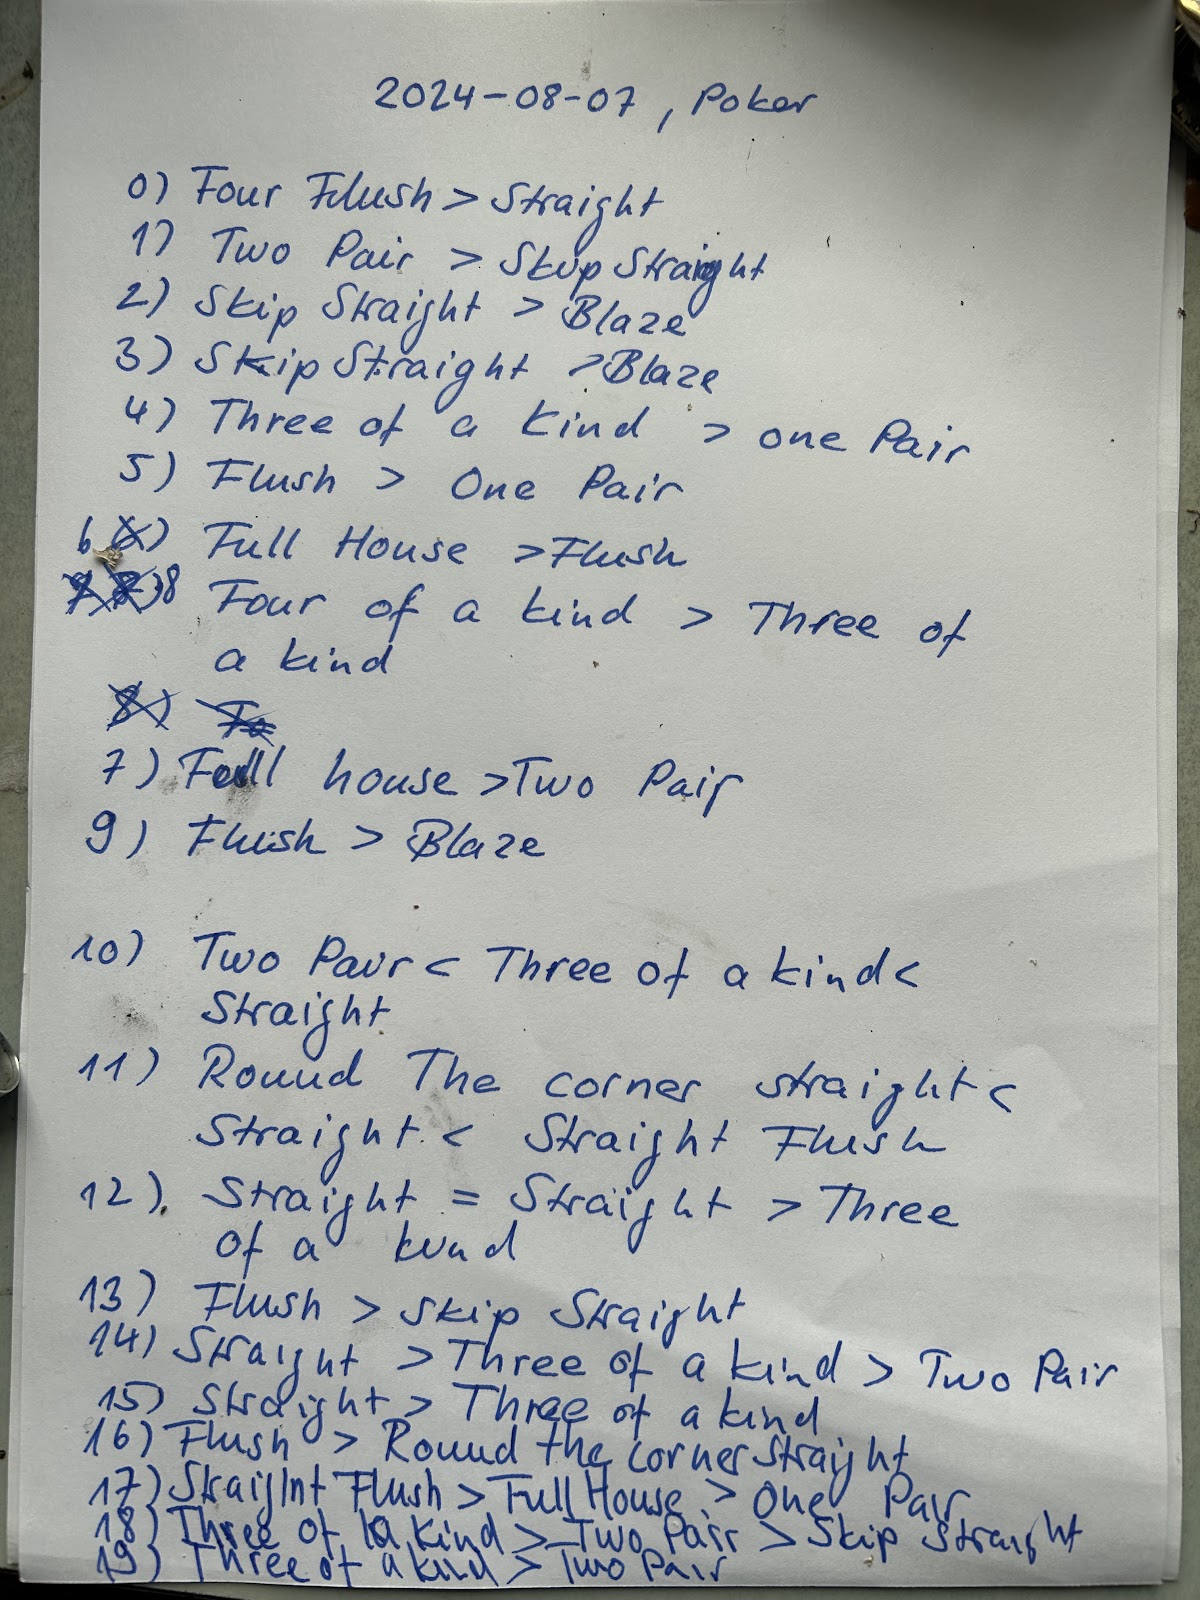 2024-08-07, Poker
0) Four Flush > Straight
1) Two Pair > Skip Straight
2) Skip Straight > Blaze
3) Skip Straight > Blaze
4) Three of a kind > one Pair
5) Flush > One Pair
6) Full House > Flush
8 Four of a kind > Three of
a kind
7) Full house > Two Pair
9) Flush > Blaze
10) Two Pair < Three of a kind <
Straight
11) Round The corner straight <
Straight < Straight Flush
12) Straight = Straight > Three
of a kind
13) Flush > Skip Straight
14) Straight > Three of a kind > Two Pair
15) Straight > Three of a kind
16) Flush > Round the corner straight
17) Straight Flush > Full House > One Pair
18) Three of a kind > Two Pair > Skip Straight
19) Three of a kind > Two Pair